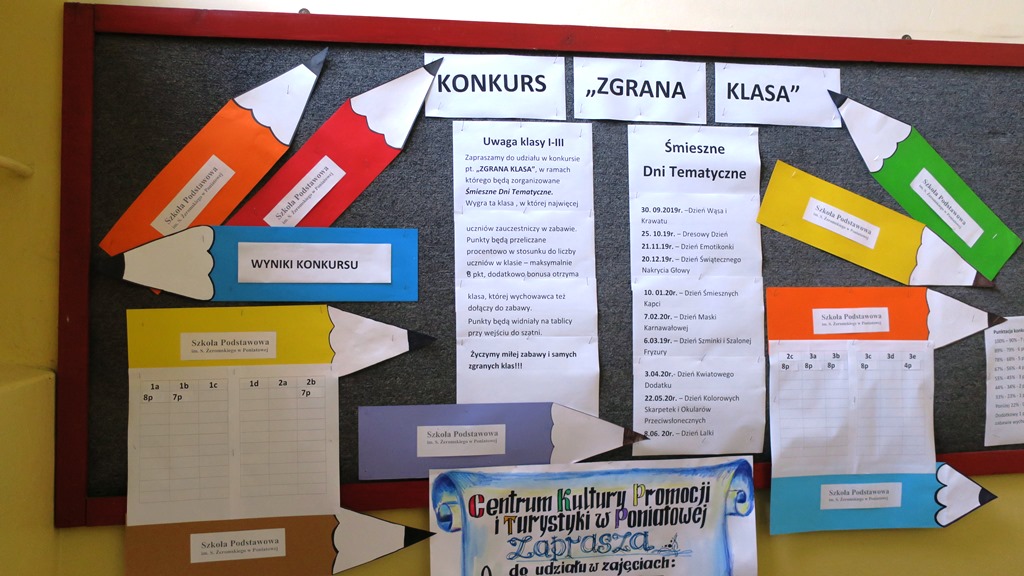 KONKURS „ZGRANA KLASA”
Szkoła Podstawowa
im. S. Żeromskiego w Poniatowej
Szkoła Podstawowa
im. S. Żeromskiego w Poniatowej
WYNIKI KONKURSU
Szkoła Podstawowa
im. S. Żeromskiego w Poniatowej
1a 1b 1c 1d 2a 2b
8p 7p 7p
Szkoła Podstawowa
im. S. Żeromskiego w Poniatowej
Uwaga klasy I-III
Zapraszamy do udziału w konkursie
pt. „ZGRANA KLASA”, w ramach
którego będą zorganizowane
Śmieszne Dni Tematyczne.
Wygra ta klasa , w której najwięcej
uczniów zauczestniczy w zabawie.
Punkty będą przeliczane
procentowo w stosunku do liczby
uczniów w klasie – maksymalnie
8 pkt, dodatkowo bonusa otrzyma
klasa, której wychowawca też
dołączy do zabawy.
Punkty będą widniały na tablicy
przy wejściu do szatni.
Życzymy miłej zabawy i samych
zgranych klas!!!
Śmieszne
Dni Tematyczne
30. 09.2019r. –Dzień Wąsa i
Krawatu
25. 10.19r. – Dresowy Dzień
21.11.19r. – Dzień Emotikonki
20.12.19r. – Dzień Świątecznego
Nakrycia Głowy
10. 01.20r. – Dzień Śmiesznych
Kapci
7.02.20r. – Dzień Maski
Karnawałowej
6.03.19r. – Dzień Szminki i Szalonej
Fryzury
3.04.20r.- Dzień Kwiatowego
Dodatku
22.05.20r. – Dzień Kolorowych
Skarpetek i Okularów
Przeciwsłonecznych
8.06. 20r. – Dzień Lalki
Szkoła Podstawowa
im. S. Żeromskiego w Poniatowej
Centrum Kultury Promocji
i Turystyki w Poniatowej
Zaprasza
do udziału w zajęciach:
Szkoła Podstawowa
im. S. Żeromskiego w Poniatowej
Szkoła Podstawowa
im. S. Żeromskiego w Poniatowej
Szkoła Podstawowa
im. S. Żeromskiego w Poniatowej
2c 3a 3b 3c 3d 3e
8p 8p 8p 8p 4p
Szkoła Podstawowa
im. S. Żeromskiego w Poniatowej